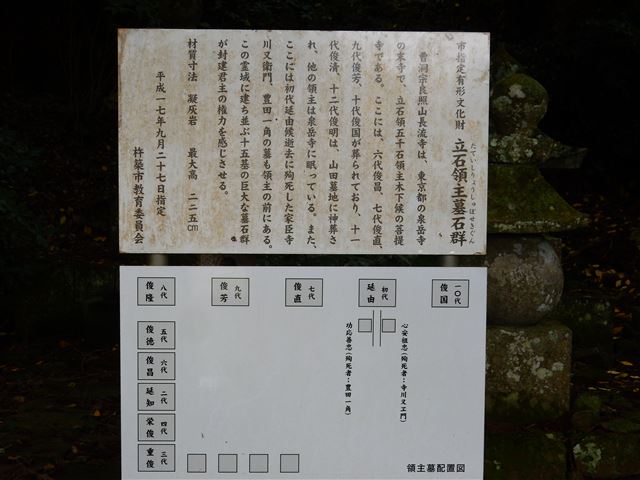 市指定有形文化財
立石領主墓石群
たていしりょうしゅぼせきぐん
曹洞宗良照山長流寺は、東京都の泉岳寺
の末寺で、立石領五千石領主木下候の菩提
寺である。ここには、六代俊昌、七代俊直、
九代俊芳、十代俊国が葬られており、十一
代俊清、十二代俊明は、山田墓地に神葬さ
れ、他の領主は泉岳寺に眠っている。また、
ここには初代延由候逝去に殉死した家臣寺
川又衛門、豊田一角の墓も領主の前にある。
この霊域に建ち並ぶ十五基の巨大な墓石群
が封建君主の権力を感じさせる。
材質寸法 凝灰岩 最大高 二二五㎝
平成一七年九月二十七日指定
杵築市教育委員会
一〇代 俊国
初代 延由
七代 俊直
九代 俊芳
八代 俊隆
五代 俊徳
六代 俊昌
二代 延知
四代 栄俊
三代 重俊
心安祖忠(殉死者:寺川又ヱ門)
功応善忠(殉死者:豊田一角)
領主墓配置図